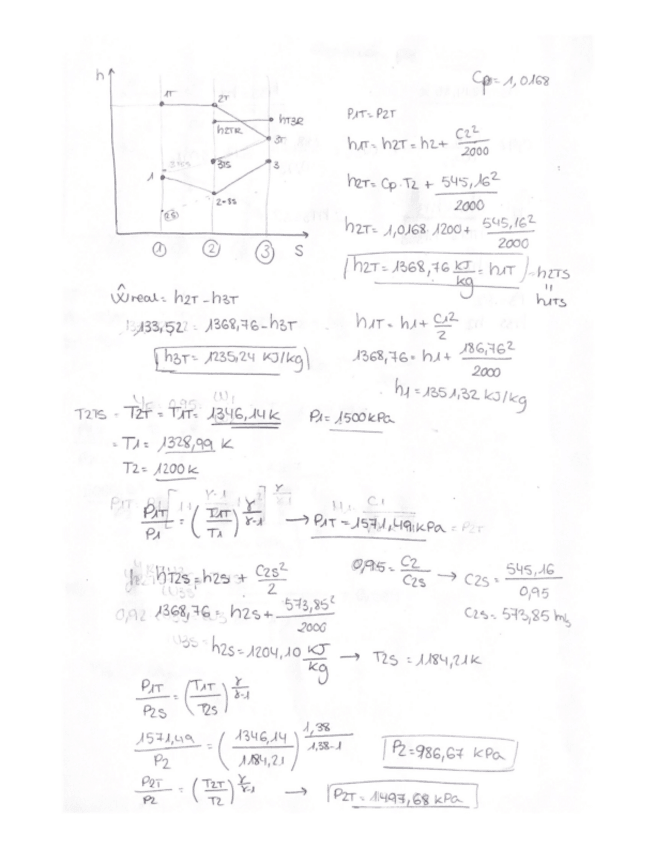 Cp=1,0168
h
1T
2T
hT3R
h2TR
3T
1
3TS
3
2=3s
(2s)
① ② ③ S
P1T=P2T
h1T=h2T=h2+ C2²/2000
h2T=Cp·T2+ 545,16²/2000
h2T=1,0168·1200+ 545,16²/2000
h2T=1368,76 KJ/kg = h1T = h2TS
"
h1TS
Ŵreal= h2T-h3T
133,52= 1368,76-h3T
h3T= 1235,24 KJ/kg
h1T=h1+ C1²/2
1368,76=h1+ 186,76²/2000
h1=1351,32 KJ/kg
T2TS = T2T = T1T= 1346,14K P1=1500kPa
=T1= 1328,99 K
T2= 1200K
P1T/P1 = (T1T/T1)^γ/γ-1 → P1T=1571,49 kPa = P2T
hT2s=h2s + C2s²/2
0,95= C2/C2s → C2s= 545,16/0,95
1368,76= h2s+ 573,85²/2000
C2s= 573,85 m/s
h2s=1204,10 KJ/kg → T2s=1184,21K
P1T/P2s = (T1T/T2s)^γ/γ-1
1571,49/P2 = (1346,14/1184,21)^1,38/1,38-1
P2=986,67 kPa
P2T/P2 = (T2T/T2)^γ/γ-1 → P2T=1497,68 kPa